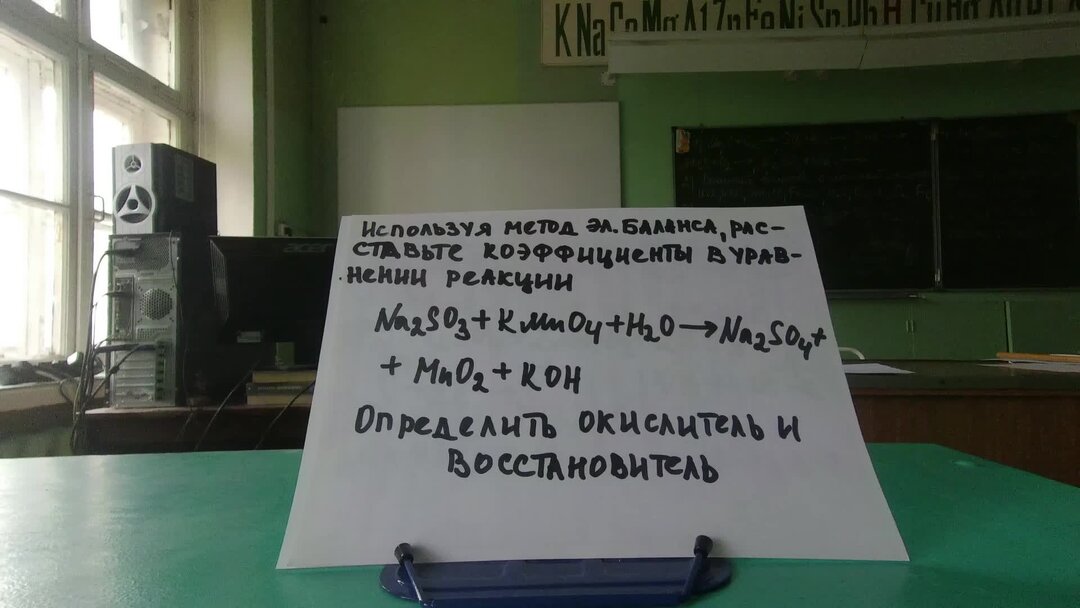 K Na Ca Mg Al Zn Fe Ni Sn Pb H Cu Hg
acer
Используя метод эл. баланса, рас-
ставьте коэффициенты в урав-
нении реакции
Na₂SO₃ + KMnO₄ + H₂O → Na₂SO₄ +
+ MnO₂ + KOH
Определить окислитель и
восстановитель